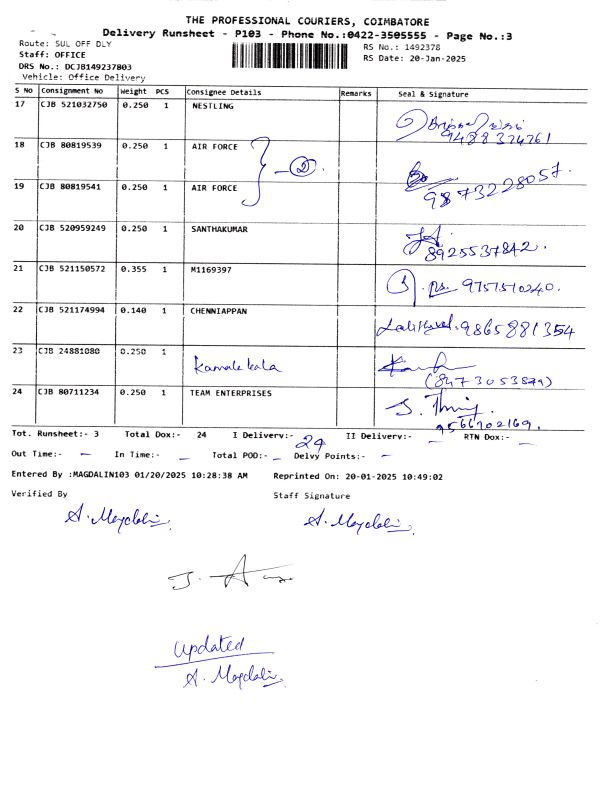 THE PROFESSIONAL COURIERS, COIMBATORE
Delivery Runsheet - P103 - Phone No.:0422-3505555 - Page No.:3
Route: SUL OFF DLY
RS No.: 1492378
Staff: OFFICE
RS Date: 20-Jan-2025
DRS No.: DCJB149237803
Vehicle: Office Delivery
S No Consignment No Weight PCS Consignee Details Remarks Seal & Signature
17 CJB 521032750 0.250 1 NESTLING
9488324761
18 CJB 80819539 0.250 1 AIR FORCE
2
19 CJB 80819541 0.250 1 AIR FORCE
9873228057.
20 CJB 520959249 0.250 1 SANTHAKUMAR
8925537842.
21 CJB 521150572 0.355 1 M1169397
9751510240.
22 CJB 521174994 0.140 1 CHENNIAPPAN
9865881354
23 CJB 24881080 0.250 1 Kamalekala
24 CJB 80711234 0.250 1 TEAM ENTERPRISES
9566702169.
Tot. Runsheet:- 3 Total Dox:- 24 I Delivery:- 24 II Delivery:- - RTN Dox:- -
Out Time:- - In Time:- - Total POD:- - Delvy Points:- -
Entered By :MAGDALIN103 01/20/2025 10:28:38 AM Reprinted On: 20-01-2025 10:49:02
Verified By Staff Signature
A. Magdalin A. Magdalin
updated
A. Magdalin